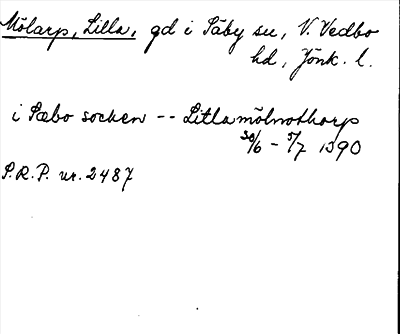 Mölarp, Lilla, gd i Säby sn, V. Vedbo
hd, Jönk. l.
i Sæbo socken -- Litlamölnothorp
30/6 - 5/7 1390
S.R.P. nr. 2487